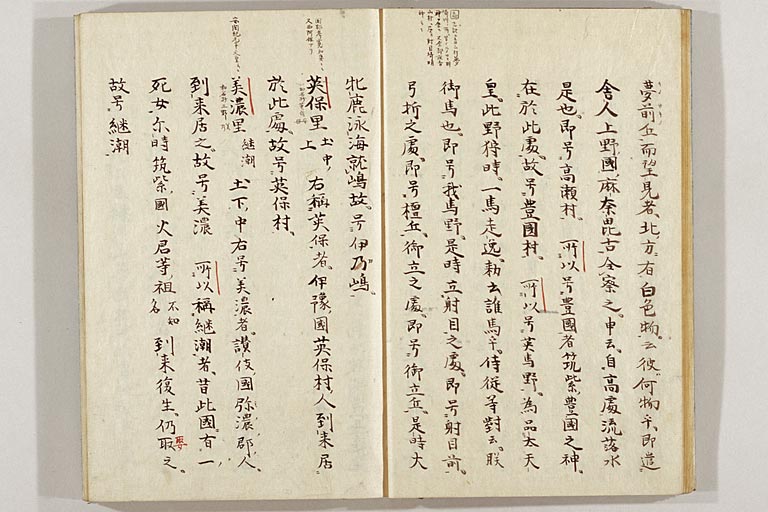 夢前丘而望見者、北方有白色物、云彼何物乎、即遣
舍人上野國麻奈毘古令察之、申云、自高處流落水
是也、即号高瀬村、所以号豊國者、筑紫豊國之神、
在於此處、故号豊國村、所以号英馬野、為品太天
皇、此野狩時、一馬走逸、勅云誰馬乎、侍従等對云、朕
御馬也、即号我馬野、是時立射目之處、即号射目前、
弓折之處、即号檀丘、御立之處、即号御立丘、是時大
牝鹿泳海就嶋、故号伊乃嶋、
英保里 土中上 右稱英保者、伊豫國英保村人到来居
於此處、故号英保村、
美濃里 継潮 土下中 右号美濃者、讃伎國弥濃郡人、
到来居之、故号美濃 所以稱継潮者、昔此國有一
死女、尓時筑紫國火君等祖 不知名 到来復生、仍取之、
娶
故号継潮